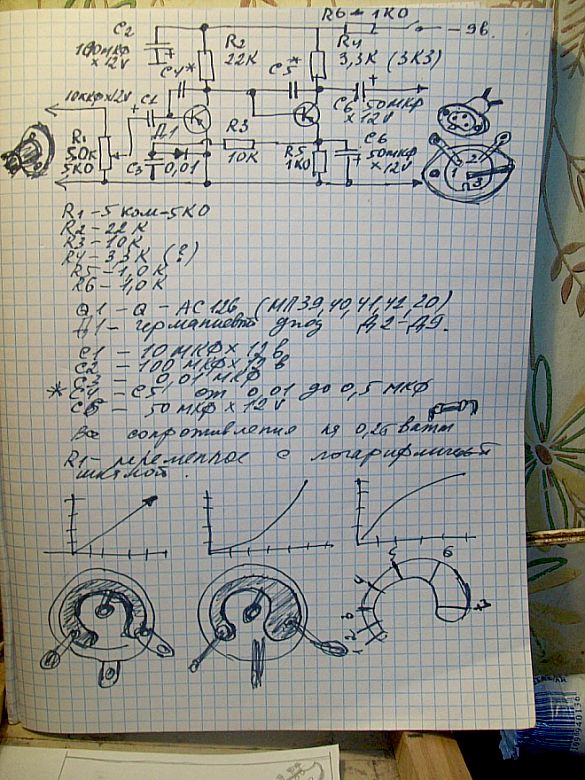 R6 - 1К0
- 9в.
C2
100мкф
x 12v
R2
22К
R4
3,3К (3К3)
C4*
C5*
10мкф x 12v
C1
Д1
R3
10К
C6 50мкф
x 12v
R1
50к
5К0
C3
0,01
R5
1К0
C6
50мкф
x 12v
1 2 3
R1 - 5 ком - 5К0
R2 - 22 К
R3 - 10 К
R4 - 3,3 К (?)
R5 - 1,0 К
R6 - 1,0 К
Q1 - Q - АС 126 (МП39,40,41,42,20)
Д1 - германиевый диод Д2-Д9.
C1 - 10 мкф x 12 в
C2 - 100 мкф x 12 в
C3 - 0,01 мкф
* C4 - C5 от 0,01 до 0,5 мкф
C6 - 50 мкф x 12 v
Все сопротивления на 0,25 ватт
R1 - переменное с логарифмической
шкалой.
1 2 3 4 5 6 7